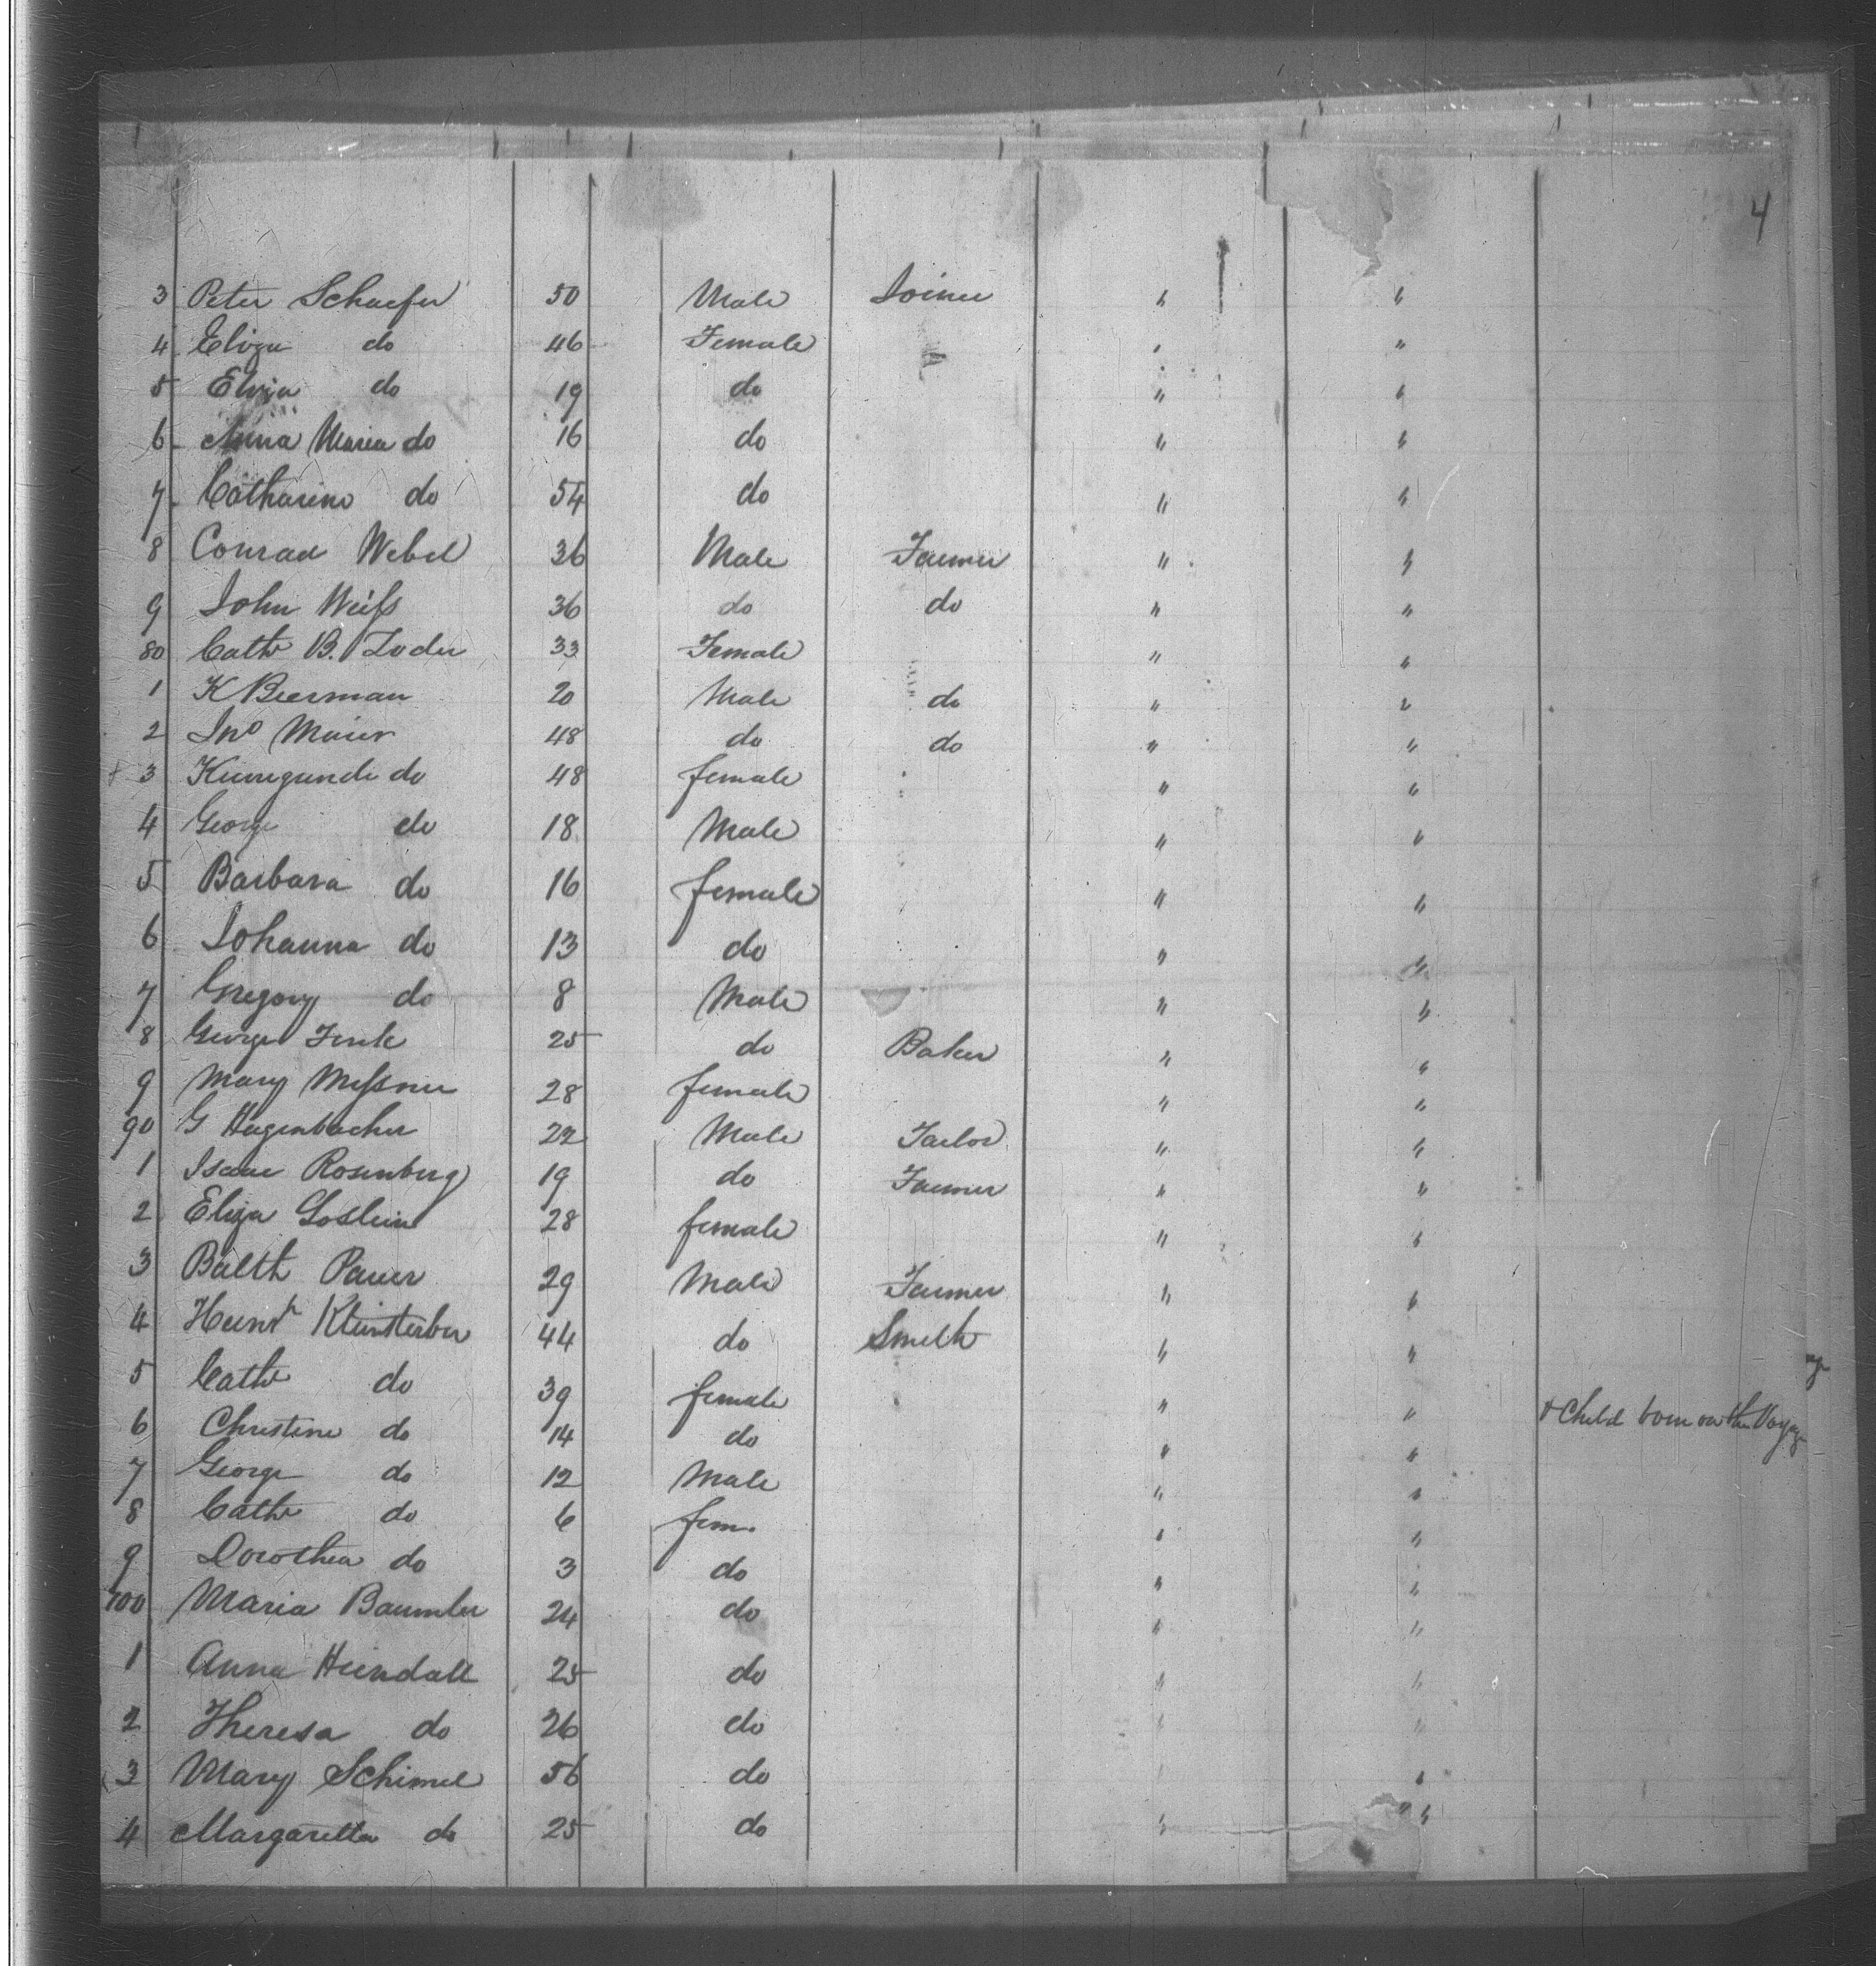 4
3 Peter Schaefer 50 Male Joiner " "
4 Eliza do 46 Female " "
5 Eliza do 19 do " "
6 Anna Maria do 16 do " "
7 Catharine do 54 do " "
8 Conrad Webel 36 Male Farmer " "
9 John Weiss 36 do do " "
80 Cath B. Zoder 33 Female " "
1 K Beerman 20 Male do " "
2 Jno Maier 48 do do " "
+ 3 Kunegunde do 48 female " "
4 George do 18 Male " "
5 Barbara do 16 female " "
6 Johanna do 13 do " "
7 Gregory do 8 Male " "
8 George Fink 25 do Baker " "
9 Mary Messner 28 female " "
90 G Hagenbacher 22 Male Tailor " "
1 Isaac Rosenberg 19 do Farmer " "
2 Eliza 28 female " "
3 Balth Pauer 29 Male Farmer " "
4 44 do Smith " "
5 Cath do 39 female " " + Child born on the Voyage
6 Christine do 14 do " "
7 George do 12 Male " "
8 Cath do 6 fem. " "
9 Dorothea do 3 do " "
100 Maria Baumler 24 do " "
1 Anna Heindall 25 do " "
2 Theresa do 26 do " "
3 Mary Schimel 56 do " "
4 Margaretta do 25 do " "